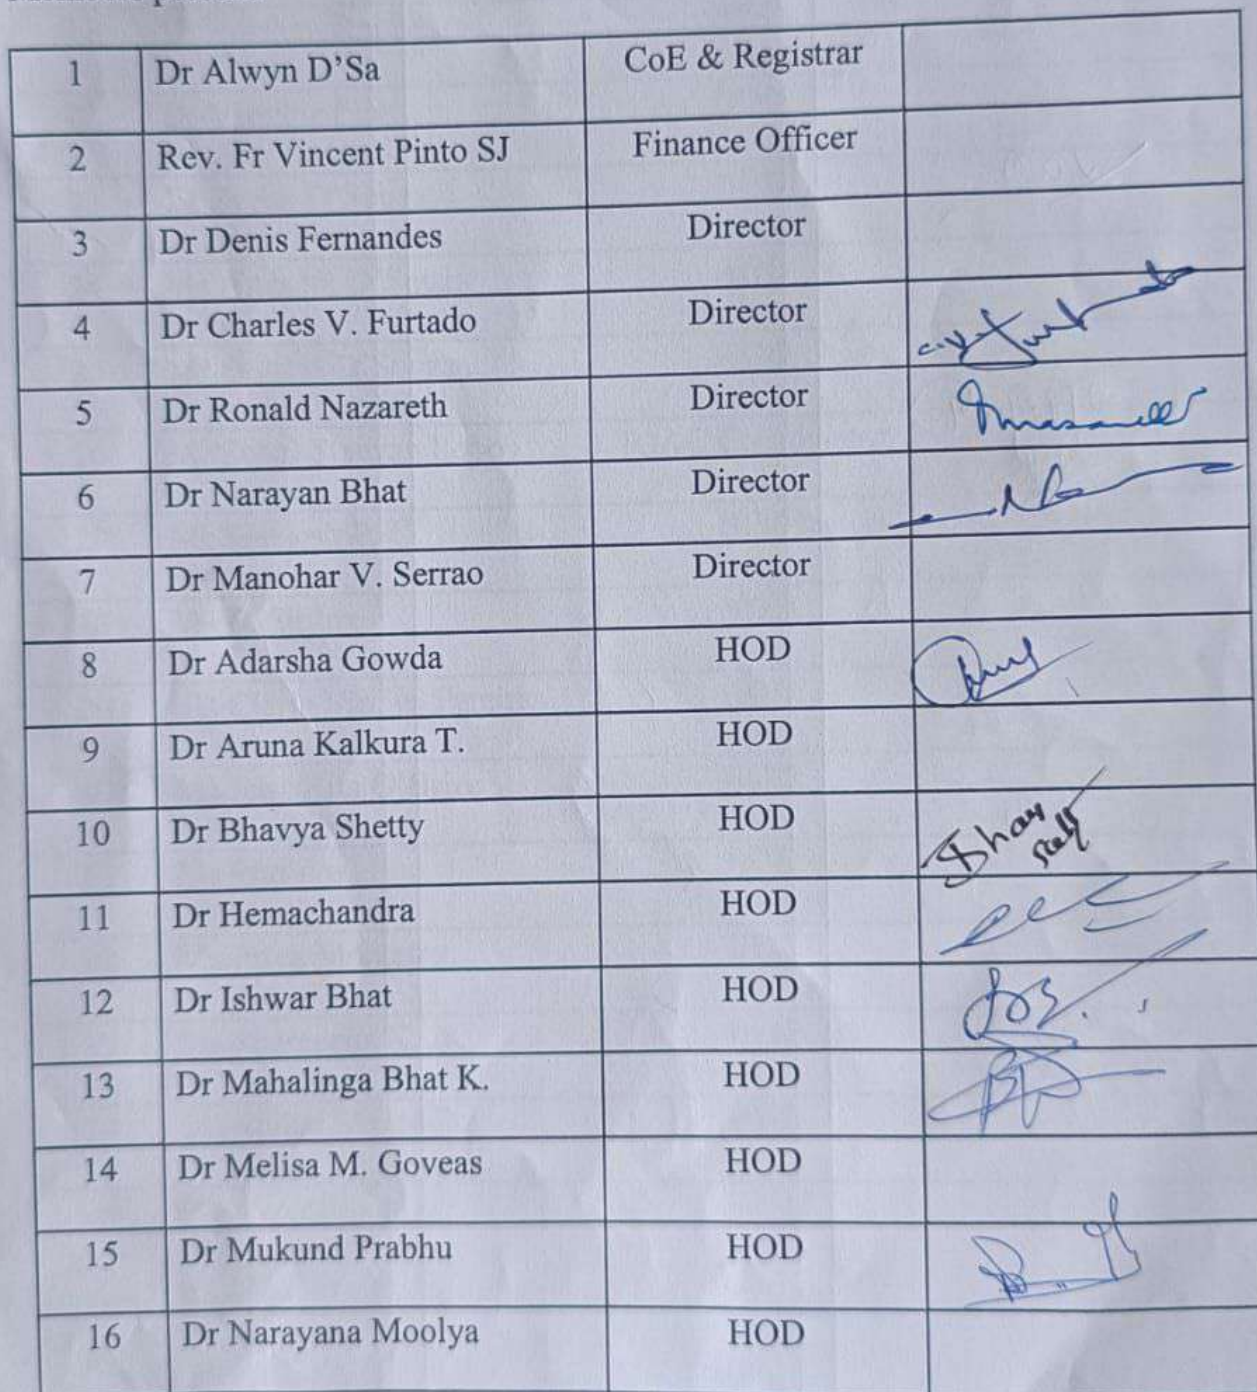 1 Dr Alwyn D'Sa CoE & Registrar
2 Rev. Fr Vincent Pinto SJ Finance Officer
3 Dr Denis Fernandes Director
4 Dr Charles V. Furtado Director
5 Dr Ronald Nazareth Director
6 Dr Narayan Bhat Director
7 Dr Manohar V. Serrao Director
8 Dr Adarsha Gowda HOD
9 Dr Aruna Kalkura T. HOD
10 Dr Bhavya Shetty HOD
11 Dr Hemachandra HOD
12 Dr Ishwar Bhat HOD
13 Dr Mahalinga Bhat K. HOD
14 Dr Melisa M. Goveas HOD
15 Dr Mukund Prabhu HOD
16 Dr Narayana Moolya HOD